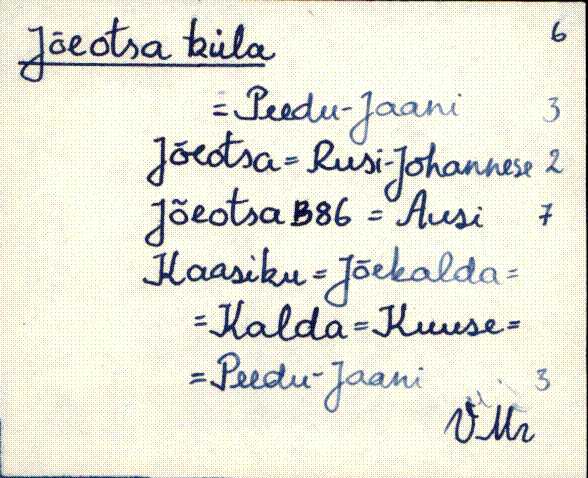 Jõeotsa küla 6
= Peedu-Jaani 3
Jõeotsa = Rusi-Johannese 2
Jõeotsa B86 = Ausi 7
Kaasiku = Jõekalda =
= Kalda = Kuuse =
= Peedu-Jaani 3
VMr